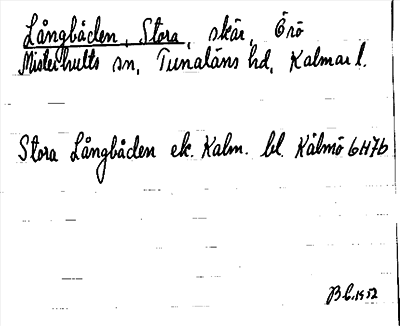 Långbåden, Stora, skär, Örö
Misterhults sn, Tunaläns hd, Kalmar l.
Stora Långbåden ek. Kalm. bl. Kålmö 6H7b
B C. 1952